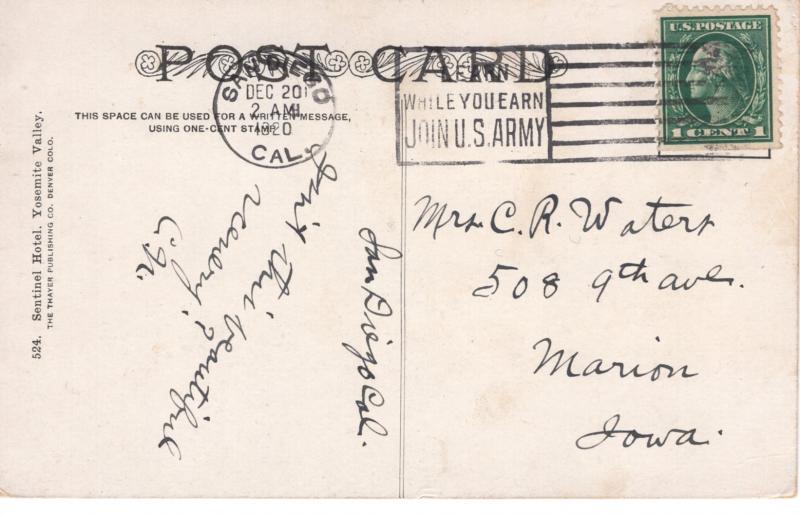 POST CARD
THIS SPACE CAN BE USED FOR A WRITTEN MESSAGE,
USING ONE-CENT STAMP.
SAN DIEGO
DEC 20
2 AM
1920
CAL.
LEARN
WHILE YOU EARN
JOIN U.S. ARMY
U.S. POSTAGE
1 CENT 1
524. Sentinel Hotel. Yosemite Valley.
THE THAYER PUBLISHING CO. DENVER COLO.
San Diego Cal.
Isn't this beautiful
scenery?
Mrs. C. R. Waters
508 9th ave.
Marion
Iowa.